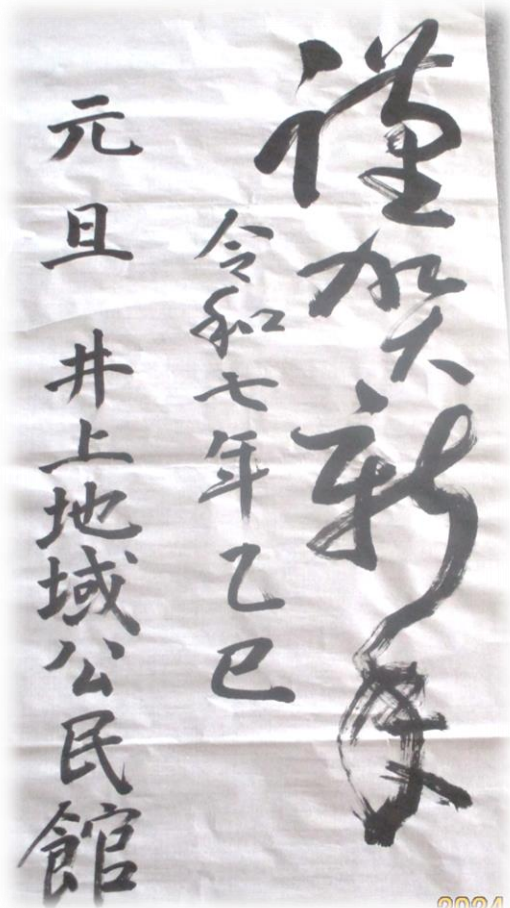 謹賀新年
令和七年乙巳
元旦 井上地域公民館